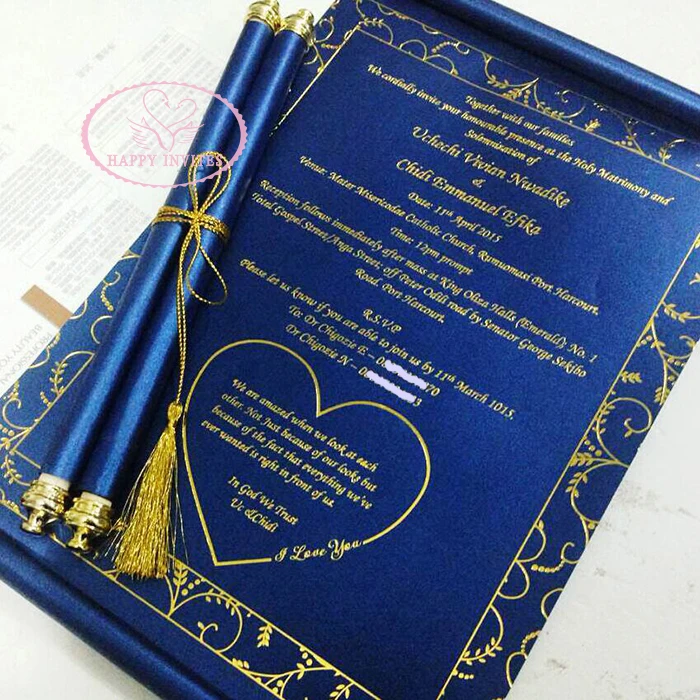 HAPPY INVITES
Together with our families
We cordially invite your honourable presence at the Holy Matrimony and
Solemnisation of
Uchechi Vivian Nwadike
&
Chidi Emmanuel Efika
Date: 11th April 2015
Time: 12pm prompt
Venue: Mater Misericodae Catholic Church, Rumuomasi Port Harcourt.
Reception follows immediately after mass at King Obiea Halls (Emerald), No. 1
Total Gospel Street/Anga Street, off Peter Odili road by Senator George Sekibo
Road. Port Harcourt.
Please let us know if you are able to join us by 11th March 1015.
R.S.V.P
To: Dr Chigozie E - 0
Dr Chigozie N - 0
We are amazed when we look at each
other. Not just because of our looks but
because of the fact that everything we've
ever wanted is right in front of us.
In God We Trust
Uc &Chidi
I Love You